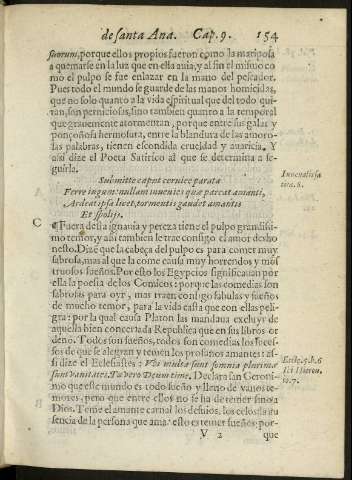 de santa Ana. Cap. 9. 154
suorum, porque ellos propios fueron como la mariposa
a quemarse en la luz que en ella auia, y al fin el mismo co
mo el pulpo se fue enlazar en la mano del pescador.
Pues todo el mundo se guarde de las manos homicidas,
que no solo quanto a la vida espiritual que del todo qui-
tan, son perniciosas, sino tambien quanto a la temporal
que grauemente atormentan, porque entre sus galas y
ponçoñosa hermosura, entre la blandura de las amoro-
sas palabras, tienen escondida crueldad y auaricia. Y
assi dize el Poeta Satirico al que se determina a se-
guirla.
Submitte caput ceruice parata
Iuuenal. sa
Ferre iugum: nullam inuenies quæ parcat amanti,
tira. 6.
Ardeat ipsa licet, tormentis gaudet amantis
Et spolijs.
C ¶ Fuera desta ignauia y pereza tiene el pulpo grandissi-
mo temor, y assi tambien le trae consigo el amor desho
nesto. Dize que la cabeça del pulpo es para comer muy
sabrosa, mas al que la come causa muy horrendos y mos
truosos sueños. Por esto los Egypcios significauan por
ella la poesia de los Comicos: porque las comedias son
sabrosas para oyr, mas traen consigo fabulas y sueños
de mucho temor, para la vida casta que con ellas peli-
gra: por la qual causa Platon las mandaua excluyr de
aquella bien concertada Republica que en sus libros or
denò. Todos son sueños, todos son comedias los suces-
sos de que se alegran y temen los profanos amantes: as-
si dize el Eclesiastes: Vbi multa sunt somnia plurimæ
Eccle. 5. b. 6
sunt vanitates. Tu vero Deum time. Declara san Geroni-
Ibi Hieron.
mo que este mundo es todo sueño y lleno de vanos te-
to. 7.
mores, pero que entre ellos no se ha de temer sino a
Dios. Teme el amante carnal los desuios, los celos, la au
sencia de la persona que ama: esto es temer sueños: por-
V 2 que